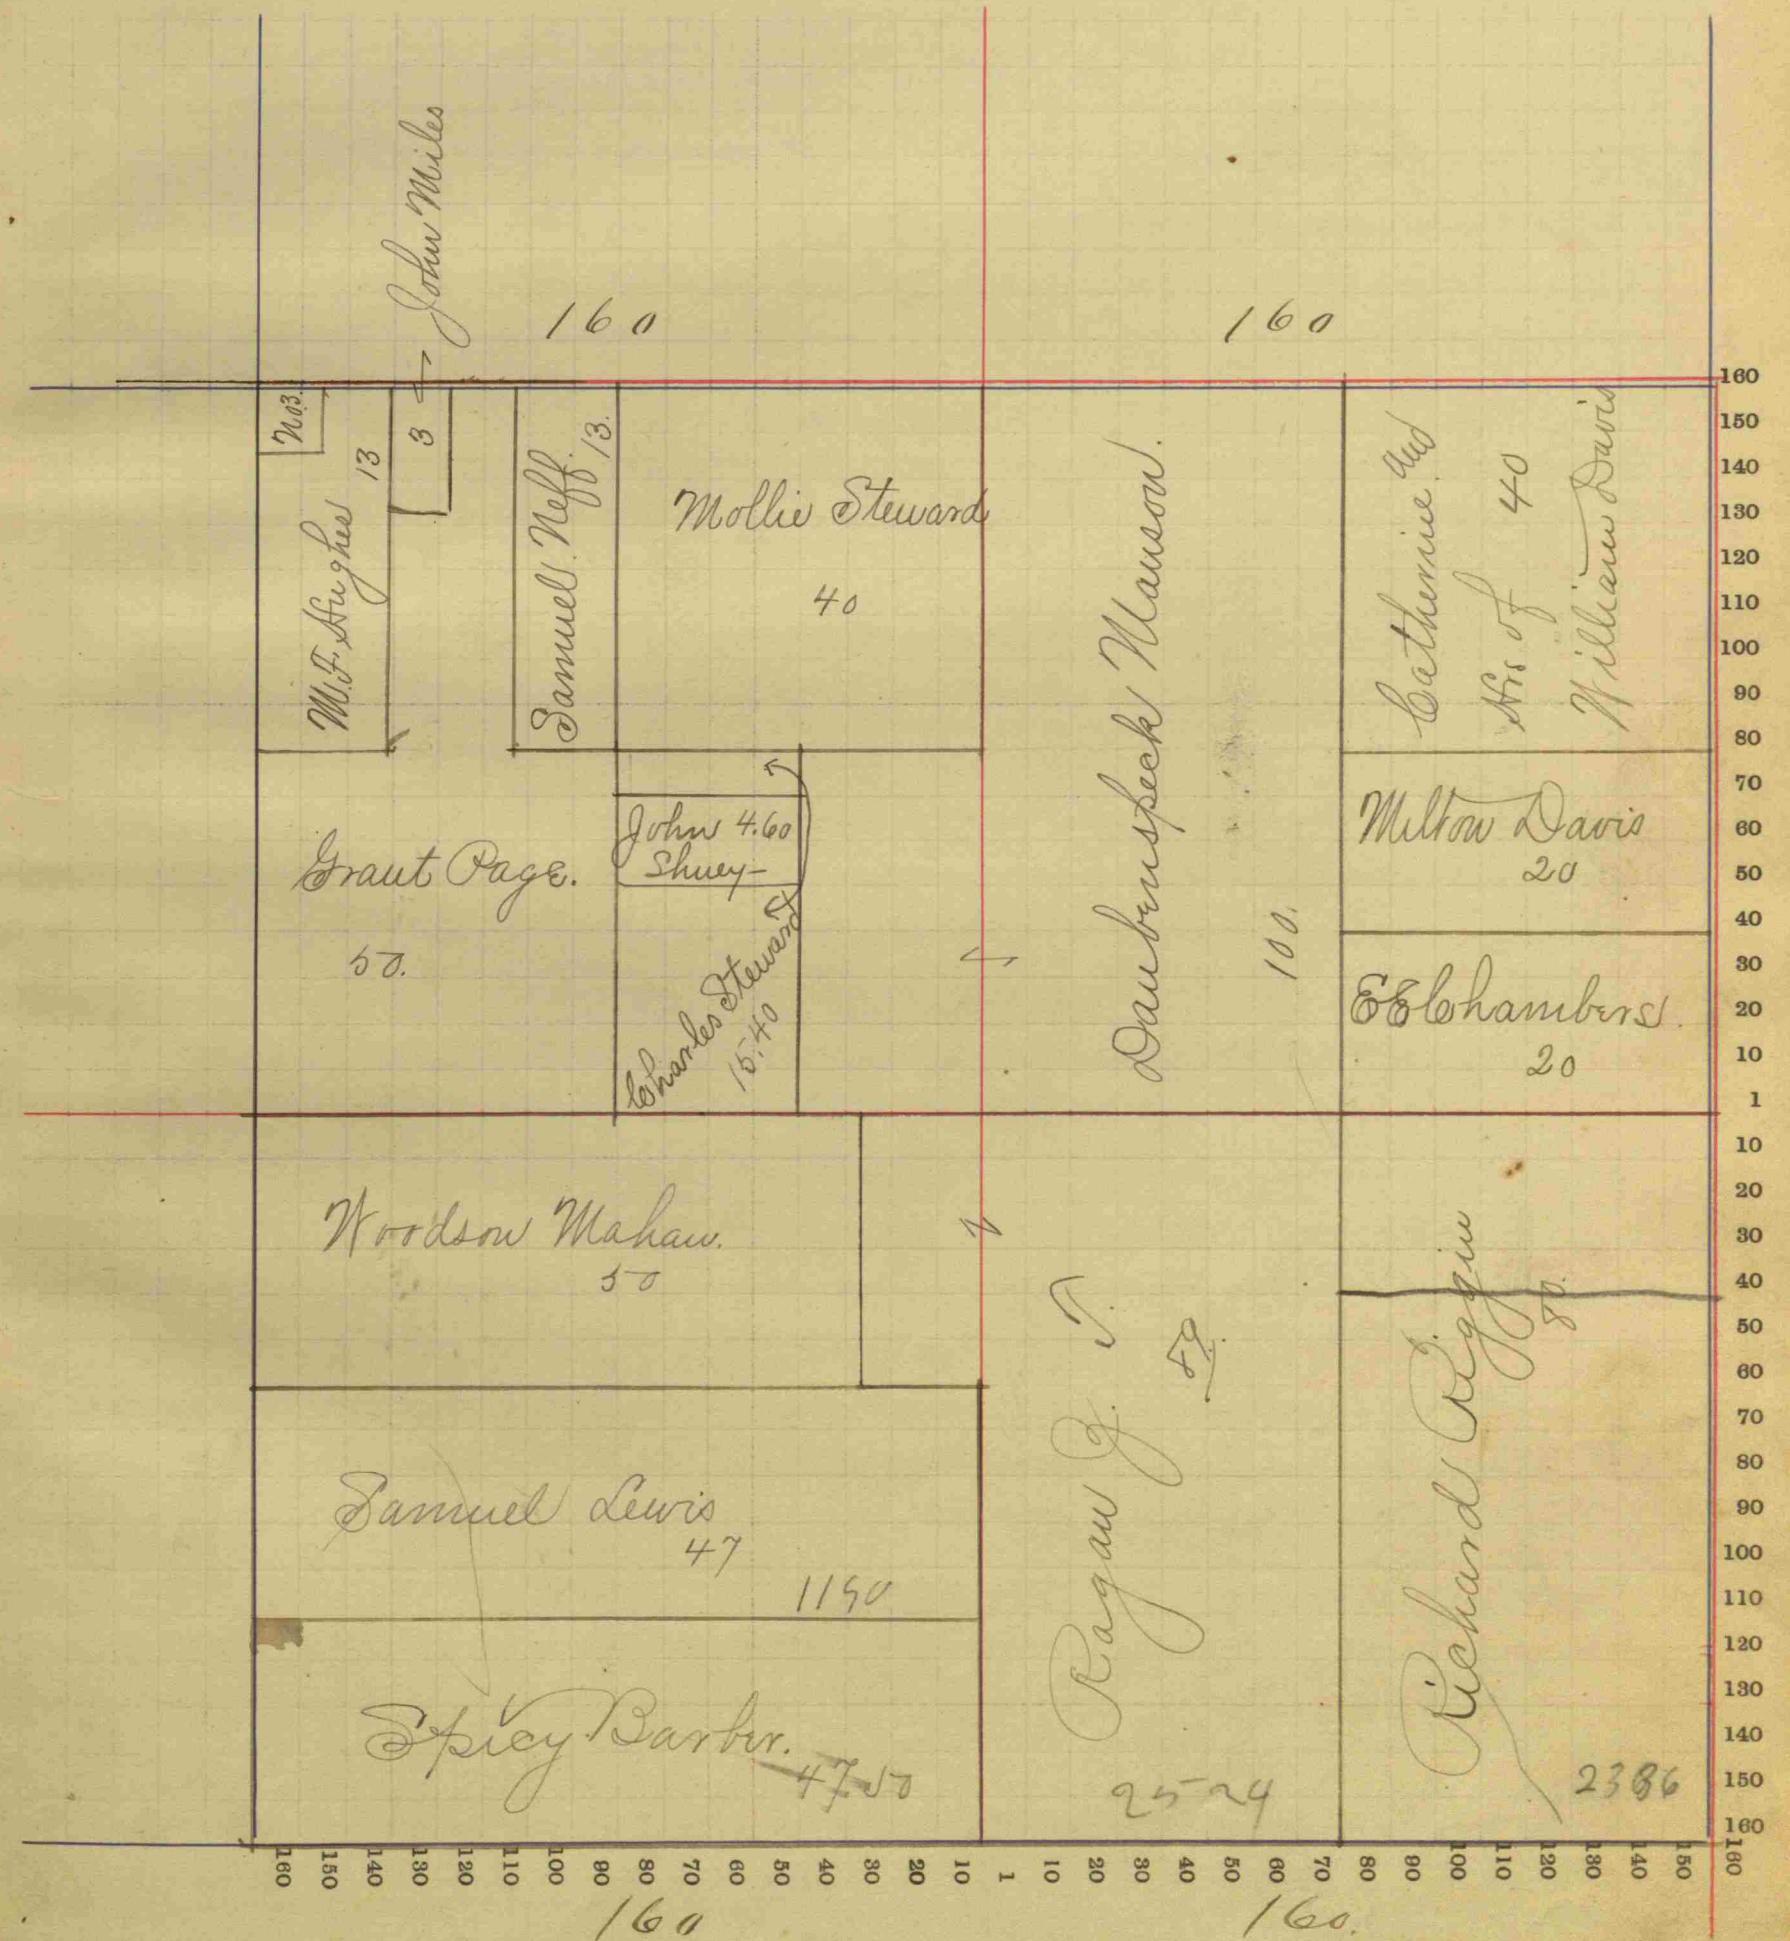 John Miles
160
160
No3.
13
W.F. Hughes
3
Samuel Neff.
13.
Mollie Steward
40
Daubenspeck Manson.
100.
Catherine And
Hrs of 40
William Davis
Grant Page.
50.
John 4.60
Shuey
Charles Steward
15.40
Milton Davis
20
E E Chambers.
20
Woodson Mahan.
50
Samuel Lewis
47
1190
Spicy Barber.
47.50
Ragan J. T.
59.
2524
Richard Riggin
80.
2386
160
150
140
130
120
110
100
90
80
70
60
50
40
30
20
10
1
10
20
30
40
50
60
70
80
90
100
110
120
130
140
150
160
160 150 140 130 120 110 100 90 80 70 60 50 40 30 20 10 1 10 20 30 40 50 60 70 80 90 100 110 120 130 140 150 160
160
160.